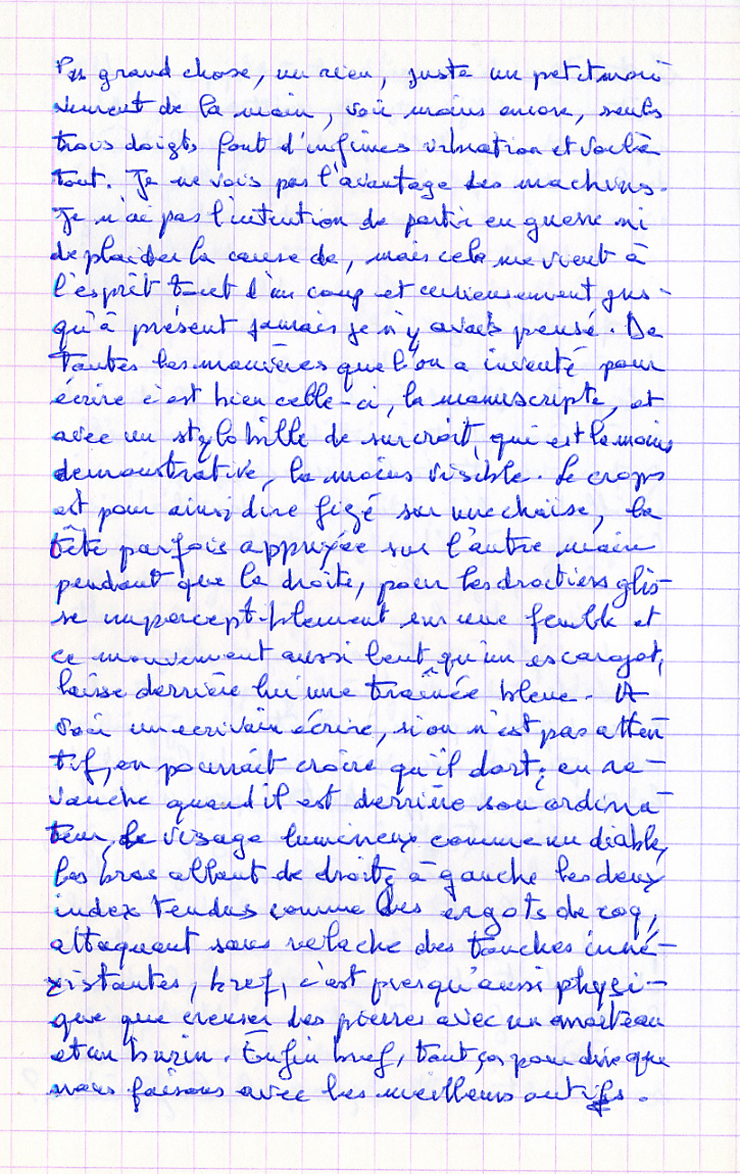 Pas grand chose, un rien, juste un petit mou
vement de la main, voir moins encore, seuls
trois doigts font d'infimes vibration et voilà
tout. Je ne vois pas l'avantage des machins.
Je n'ai pas l'intention de partir en guerre ni
de plaider la cause de, mais cela me vient à
l'esprit tout d'un coup et curieusement jus-
qu'à présent jamais je n'y avais pensé. De
toutes les manières que l'on a inventé pour
écrire c'est bien celle-ci, la manuscripte, et
avec un stylo bille de surcroit, qui est la moins
demonstrative, la moins visible. Le crops
est pour ainsi dire figé sur une chaise, la
tête parfois appuyée sur l'autre main
pendant que la droite, pour les droitiers glis-
se imperceptiblement sur une feuille et
ce mouvement aussi lent qu'un escargot,
laisse derrière lui une traînée bleue. A
voir un ecrivain écrire, si on n'est pas atten
tif, on pourrait croire qu'il dort; en re-
vanche quand il est derrière son ordina-
teur, le visage lumineux comme un diable,
les bras allant de droite à gauche les deux
index tendus comme des ergots de coq,
attaquant sans relache des touches inné-
xistantes, bref, c'est presqu'aussi physi-
que que creuser des pierres avec un marteau
et un burin. Enfin bref, tout ça pour dire que
nous faisons avec les meilleurs outils.